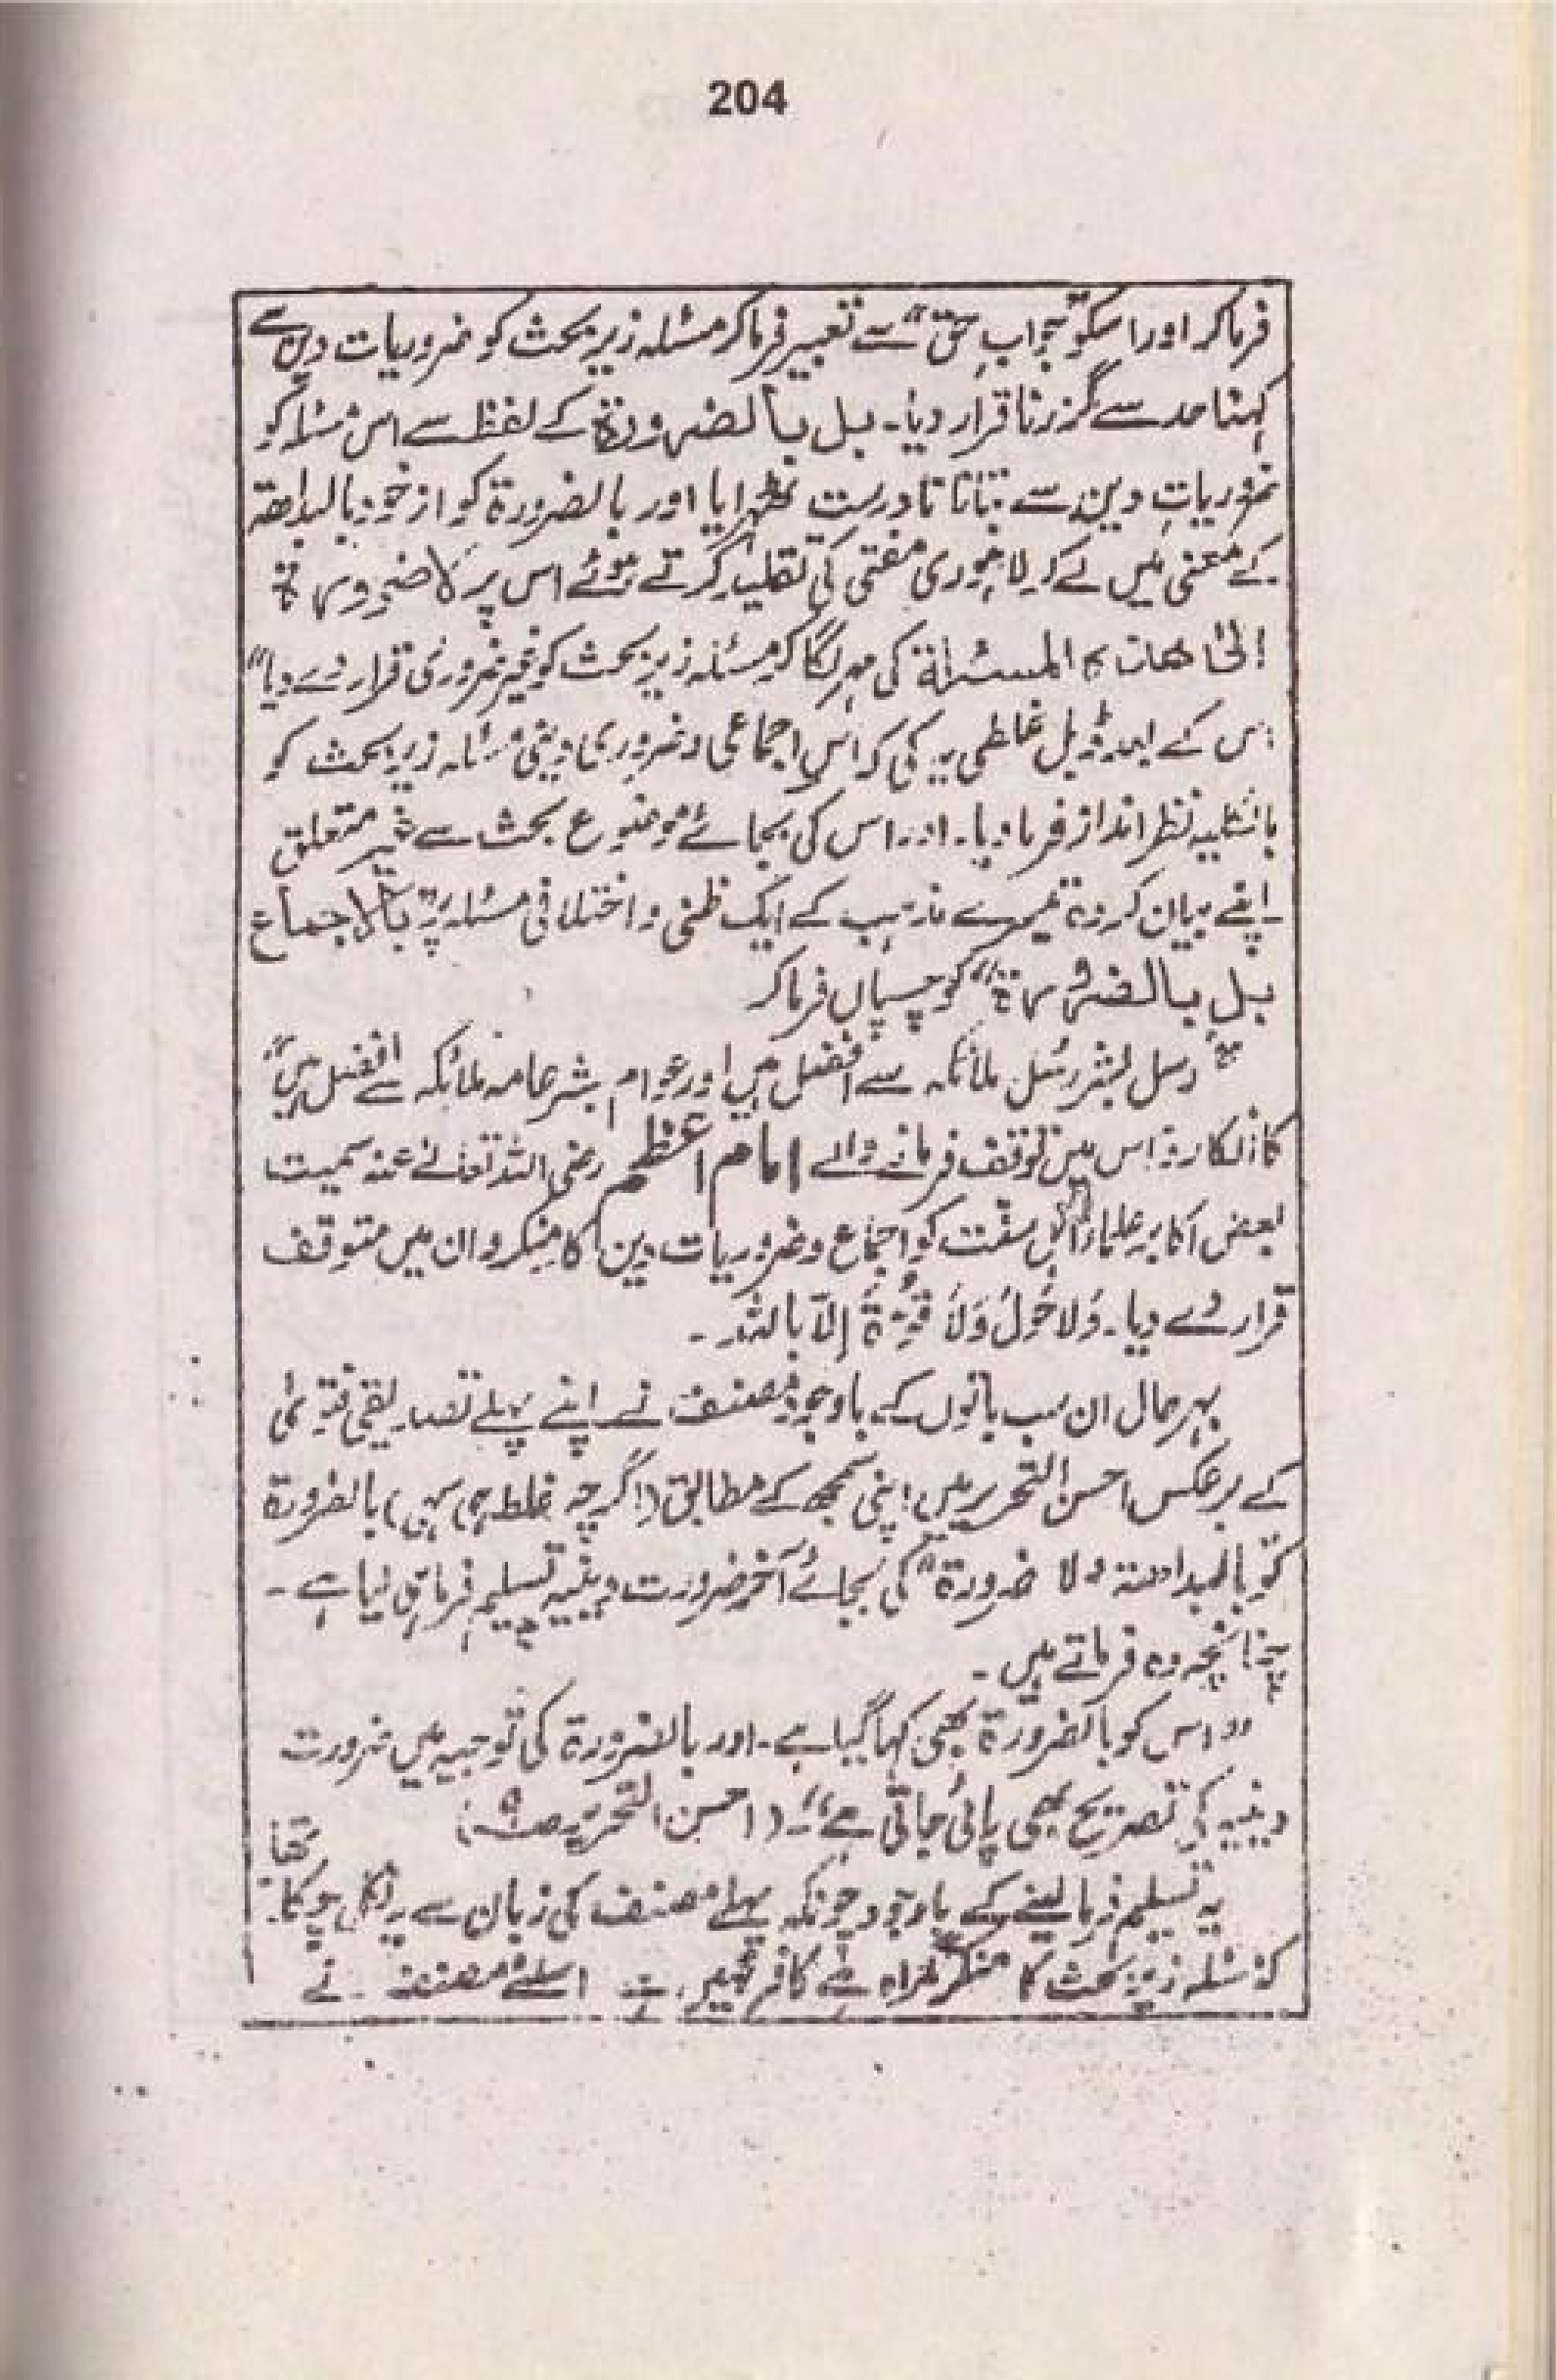 204
فرما کر اور اسکو "جواب حق" سے تعبیر فرما کر مسئلہ زیر بحث کو ضروریات دین سے
کہنا حد سے گزرنا قرار دیا۔ بل بالضرورة کے لفظ سے اس مسئلہ کو
ضروریاتِ دین سے بتانا نادرست ٹھہرایا اور بالضرورة کو از خود بالبداھة
کے معنی میں لے کر لاہوری مفتی کی تقلید کرتے ہوئے اس پر لا ضرورة
المسئلة کی مہر لگا کر مسئلہ زیر بحث کو غیر ضروری قرار دے دیا"
اس کے بعد ڈبل غلطی یہ کی کہ اس اجماعی و ضروری دینی مسئلہ زیر بحث کو
بالکلیہ نظر انداز فرما دیا۔ اور اس کی بجائے موضوع بحث سے غیر متعلق
اپنے بیان کردہ تیسرے مذہب کے ایک ظنی و اختلافی مسئلہ پر "بالاجماع
بل بالضرورة" کو چسپاں فرما کر
"رسل بشر رسل ملائکہ سے افضل ہیں اور عوام بشر عامہ ملائکہ سے افضل ہیں"
کا انکار و اس میں توقف فرمانے والے امام اعظم رضی اللہ تعالےٰ عنہ سمیت
بعض اکابر علماء اہل سنّت کو اجماع و ضروریات دین کا منکر و ان میں متوقف
قرار دے دیا۔ وَلا حَولَ وَلَا قُوّةَ إلّا باللہ۔
بہر حال ان سب باتوں کے باوجود مصنف نے اپنے پہلے تصدیقی فتویٰ
کے برعکس احسن التحریر میں اپنی سمجھ کے مطابق (اگرچہ غلط ہی سہی) بالضرورة
کو "بالبداھة ولا ضرورة" کی بجائے آخر ضرورت دینیہ تسلیم فرما ہی لیا ہے۔
چنانچہ وہ فرماتے ہیں۔
"اس کو بالضرورة بھی کہا گیا ہے۔ اور بالضرورة کی توجیہ میں ضرورت
دینیہ کی تصریح بھی پائی جاتی ہے"۔ (احسن التحریر
یہ تسلیم فرما لینے کے باوجود چونکہ پہلے مصنف کی زبان سے یہ نکل چکا تھا
کہ مسئلہ زیر بحث کا منکر گمراہ ہے کافر نہیں ہے اسلئے مصنف نے